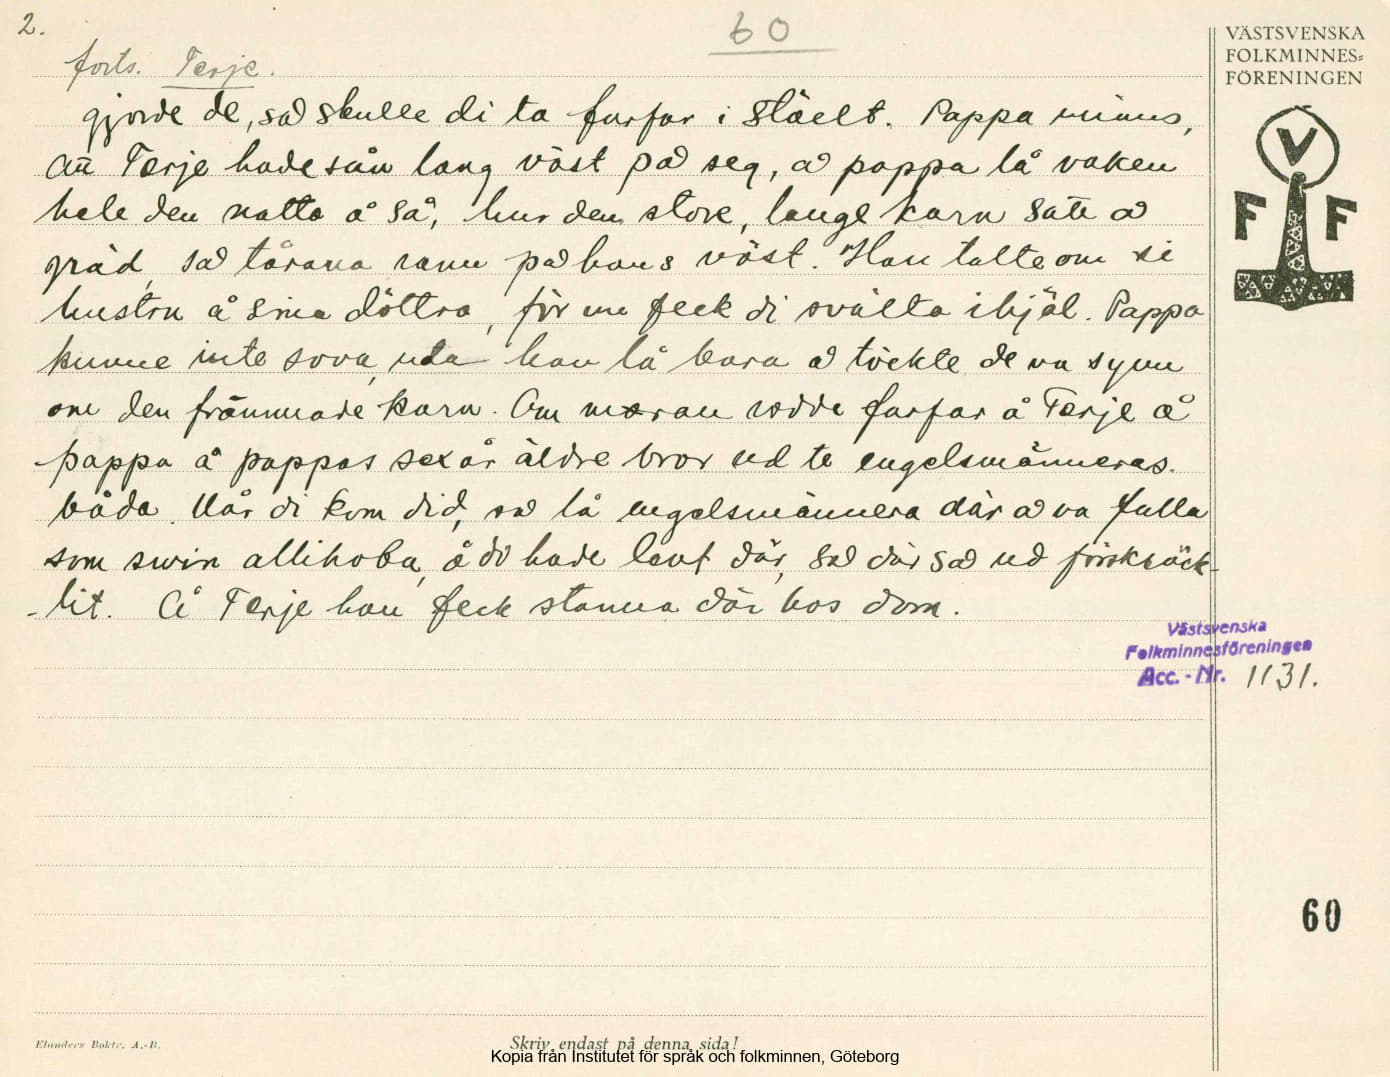 2.
60
VÄSTSVENSKA
FOLKMINNES=
FÖRENINGEN
V
F F
forts. Terje.
gjorde de, så skulle di ta farfar i stäelt. Pappa minns,
att Terje hade sån lang väst på seg, å pappa lå vaken
hele den natta å så, hur den store, lange karn satt å
gräd, så tårana rann på hans väst. Han talte om si
hustru å sina döttra, för nu feck di svälta ihjäl. Pappa
kunne inte sova, uta han lå bara å töckte de va synn
om den främmade karn. Om möran rodde farfar å Terje å
pappa å pappas sex år äldre bror ud te engelsmänneras
båda. När di kom did, så lå engelsmännera där å va fulla
som svin allihoba, å di hade levt där, så där så ud förskräck-
-lit. Å Terje han feck stanna där hos dom.
Västsvenska
Folkminnesföreningen
Acc. - Nr. 1131.
60
Elanders Boktr. A.-B.
Skriv endast på denna sida!
Kopia från Institutet för språk och folkminnen, Göteborg